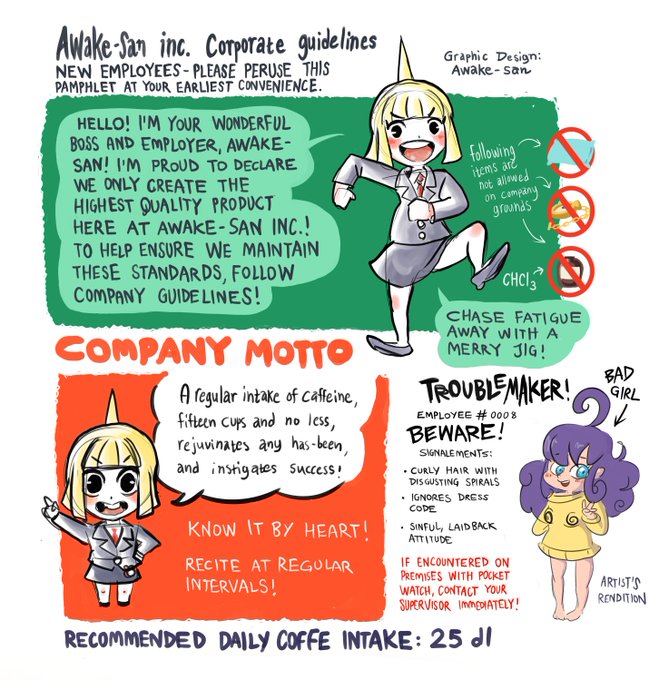 Awake-San inc. Corporate guidelines
NEW EMPLOYEES - PLEASE PERUSE THIS
PAMPHLET AT YOUR EARLIEST CONVENIENCE.
Graphic Design:
Awake-san
HELLO! I'M YOUR WONDERFUL
BOSS AND EMPLOYER, AWAKE-
SAN! I'M PROUD TO DECLARE
WE ONLY CREATE THE
HIGHEST QUALITY PRODUCT
HERE AT AWAKE-SAN INC.!
TO HELP ENSURE WE MAINTAIN
THESE STANDARDS, FOLLOW
COMPANY GUIDELINES!
following
items are
not allowed
on company
grounds
CHCl3
CHASE FATIGUE
AWAY WITH A
MERRY JIG!
COMPANY MOTTO
A regular intake of caffeine,
fifteen cups and no less,
rejuvinates any has-been,
and instigates success!
KNOW IT BY HEART!
RECITE AT REGULAR
INTERVALS!
TROUBLEMAKER!
EMPLOYEE # 0008
BEWARE!
SIGNALEMENTS:
• CURLY HAIR WITH
DISGUSTING SPIRALS
• IGNORES DRESS
CODE
• SINFUL, LAIDBACK
ATTITUDE
IF ENCOUNTERED ON
PREMISES WITH POCKET
WATCH, CONTACT YOUR
SUPERVISOR IMMEDIATELY!
BAD
GIRL
ARTIST'S
RENDITION
RECOMMENDED DAILY COFFE INTAKE: 25 dl